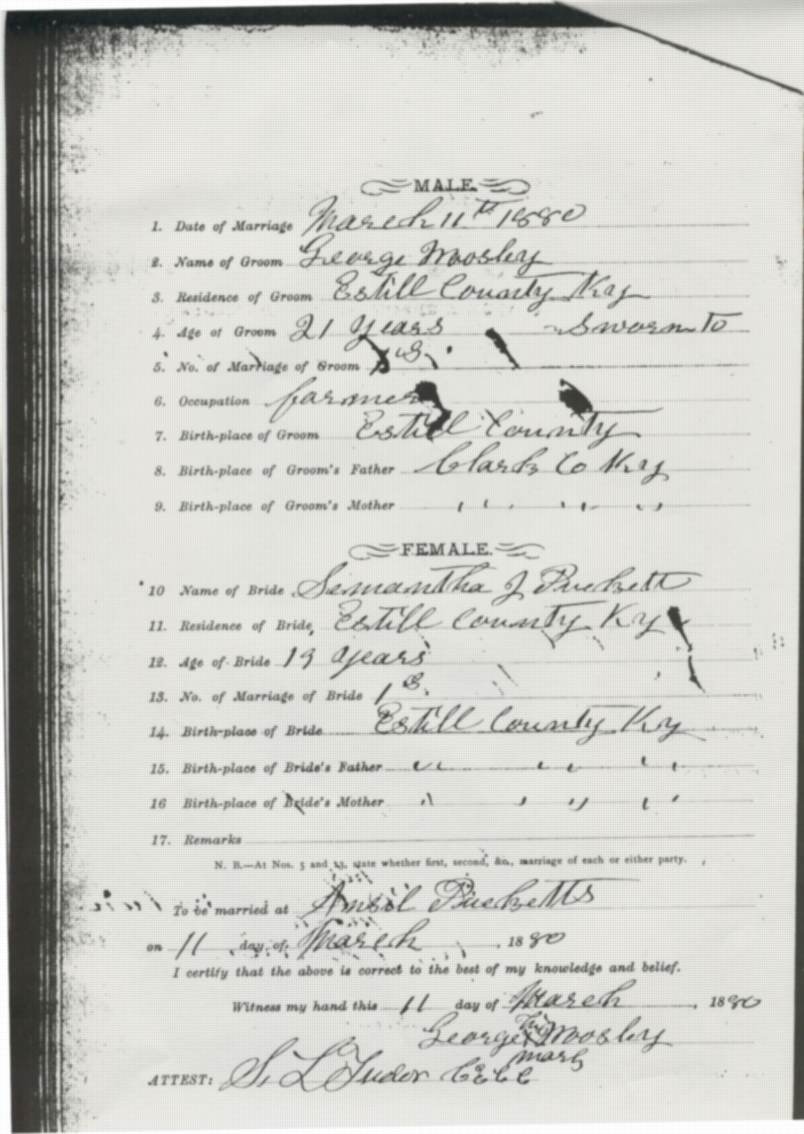 MALE.
1. Date of Marriage March 11th 1880
2. Name of Groom George Moosley
3. Residence of Groom Estill County Ky
4. Age of Groom 21 Years Sworn to
5. No. of Marriage of Groom 1st
6. Occupation farmer
7. Birth-place of Groom Estill County
8. Birth-place of Groom's Father Clark Co Ky
9. Birth-place of Groom's Mother " " "
FEMALE.
10 Name of Bride Semantha J Puckett
11. Residence of Bride, Estill County Ky
12. Age of Bride 19 years
13. No. of Marriage of Bride 1st
14. Birth-place of Bride Estill County Ky
15. Birth-place of Bride's Father " " "
16 Birth-place of Bride's Mother " " " "
17. Remarks
N. B.—At Nos. 5 and 13, state whether first, second, &c., marriage of each or either party.
To be married at Ansil Pucketts
on 11 day of March, 1880
I certify that the above is correct to the best of my knowledge and belief.
Witness my hand this 11 day of March, 1880
George his X mark Moosley
ATTEST: S. L. Tudor